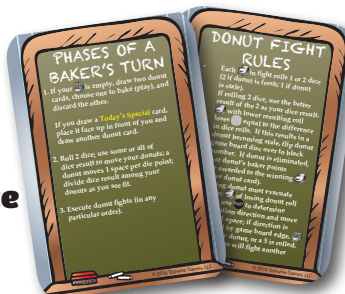 e
PHASES OF A
BAKER'S TURN
1. If your is empty, draw two donut
cards, choose one to bake (play), and
discard the other.
If you draw a Today's Special card,
place it face up in front of you and
draw another donut card.
2. Roll 2 dice; use some or all of
dice result to move your donuts; a
donut moves 1 space per die point;
divide dice result among your
donuts as you see fit.
3. Execute donut fights (in any
particular order).
© 2014 Games, LLC
DONUT FIGHT
RULES
Each in fight rolls 1 or 2 dice
(2 if donut is fresh; 1 if donut
is
If rolling 2 dice, use the better
result of the 2 as your dice result.
with lower resulting roll
equal to the difference
in dice rolls. If this results in a
donut becoming stale, flip donut
game board disc over to black
number. If donut is eliminated,
that donut's baker points
awarded to the winning
donut card).
donut must evacuate
of losing donut roll
to determine
direction and move
space; if direction is
by game board edge,
donut, or a 5 is rolled,
will fight another
© 2014 Games, LLC